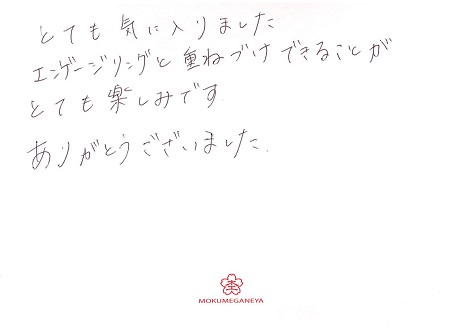 とても気に入りました
エンゲージリングと重ねづけできることが
とても楽しみです
ありがとうございました.
MOKUMEGANEYA